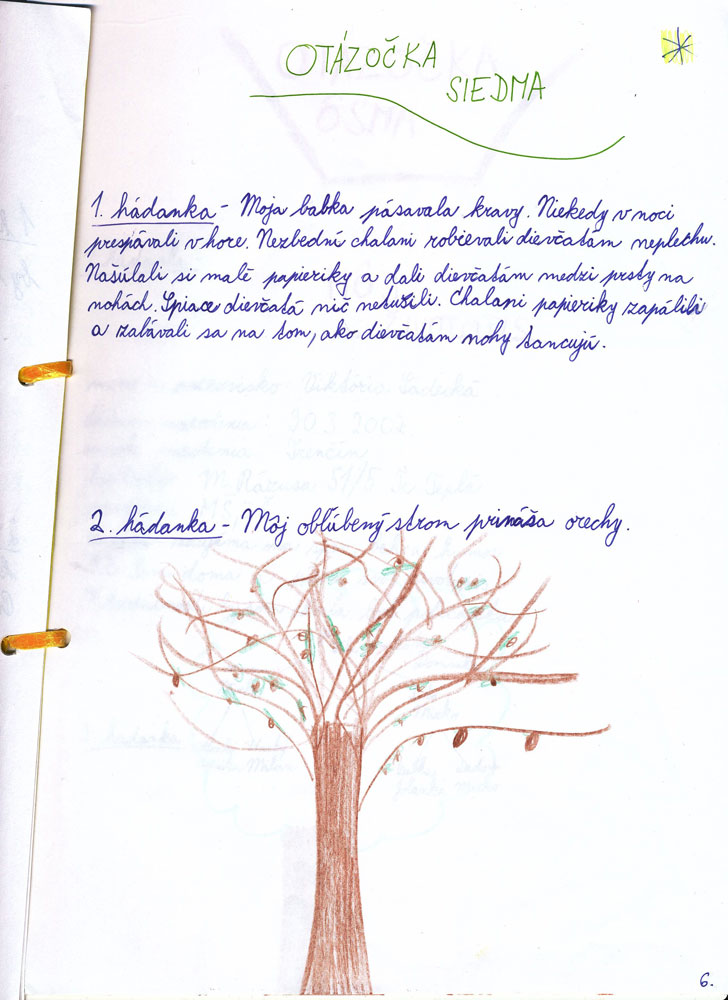 OTÁZOČKA
SIEDMA
1. hádanka - Moja babka pásavala kravy. Niekedy v noci
prespávali v hore. Nezbední chalani robievali dievčatám neplechu.
Našúľali si malé papieriky a dali dievčatám medzi prsty na
nohách. Spiace dievčatá nič netušili. Chalani papieriky zapálili
a zabávali sa na tom, ako dievčatám nohy tancujú.
2. hádanka - Môj obľúbený strom prináša orechy.
6.